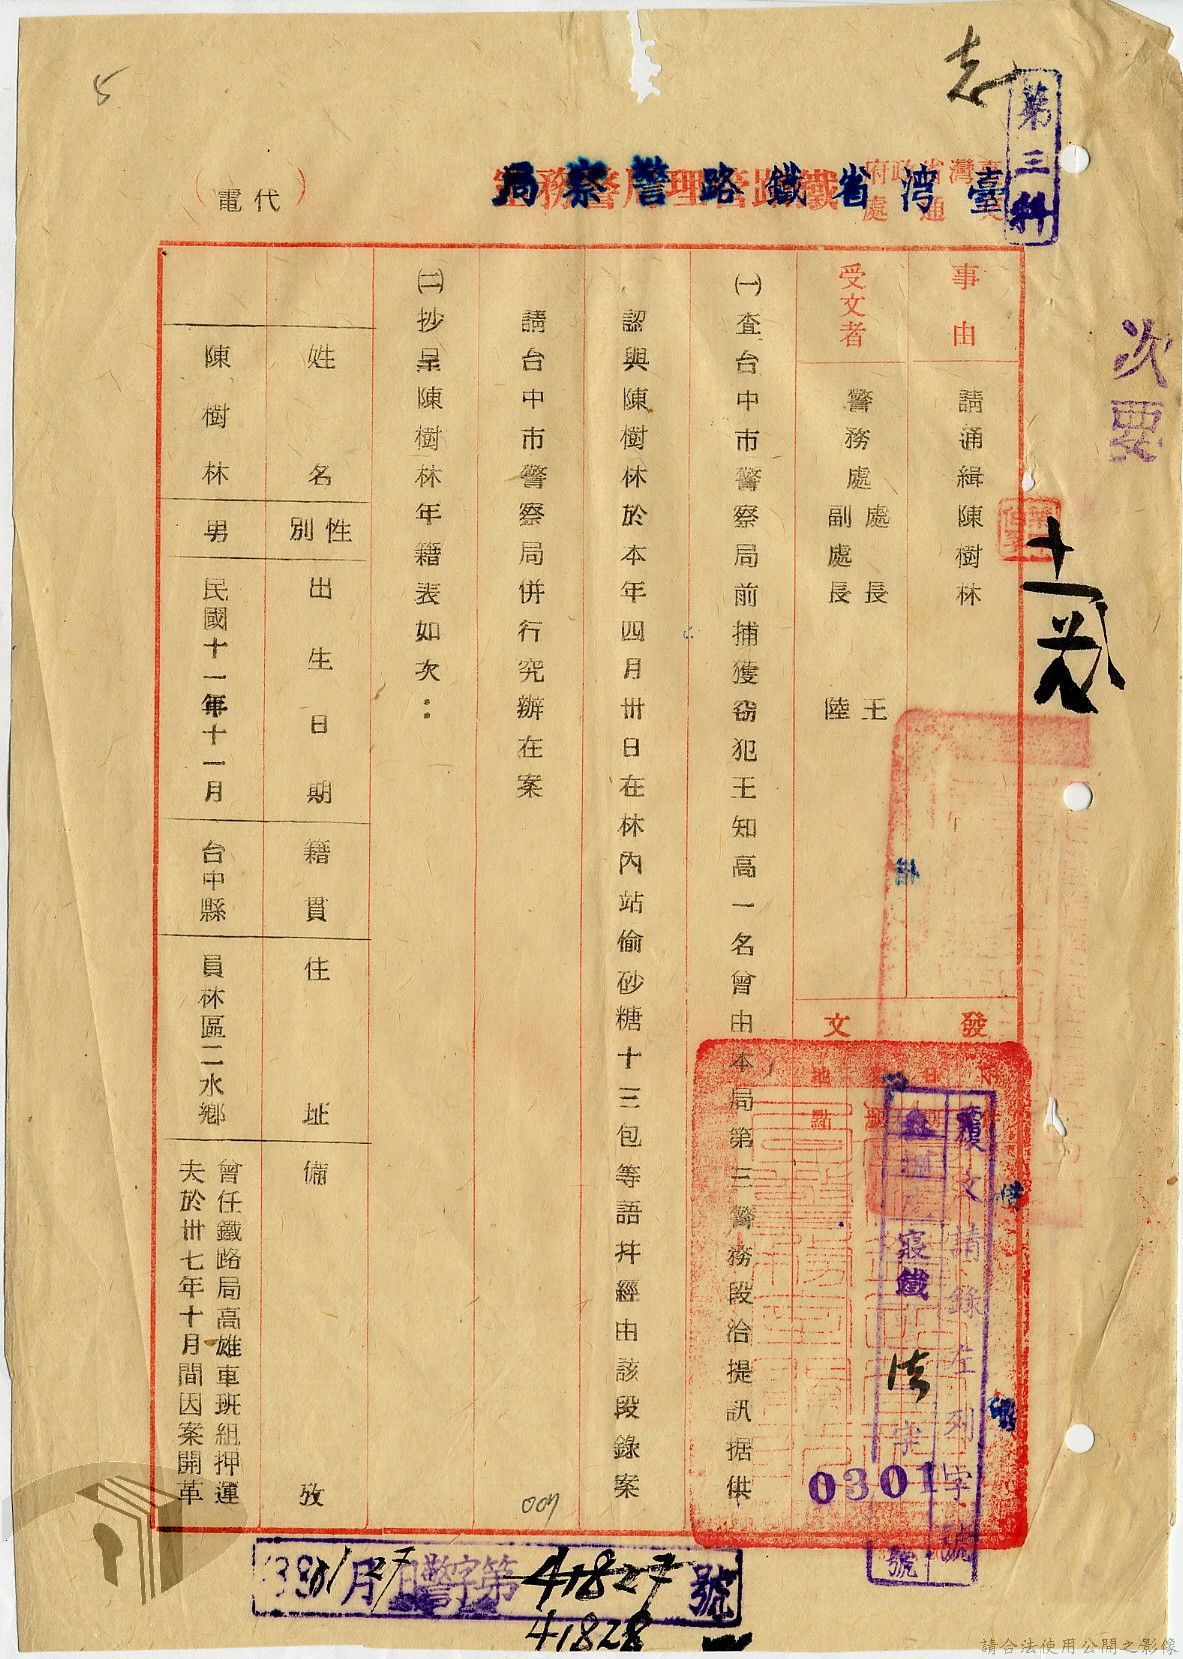 5
第三科
臺灣省鐵路警察局
（代電）
次要
事由
請通緝陳樹林
受文者
警務處處長王
副處長陸
發文
㈠查台中市警察局前捕獲竊犯王知高一名曾由本局第三警務段洽提訊据供
認與陳樹林於本年四月卅日在林內站偷砂糖十三包等語幷經由該段錄案
請台中市警察局併行究辦在案
㈡抄呈陳樹林年籍表如次：
姓名 性別 出生日期 籍貫 住址 備攷
陳樹林 男 民國十一年十一月 台中縣 員林區二水鄉 曾任鐵路局高雄車班組押運
夫於卅七年十月間因案開革
覆文請錄左列字號
鐵法字
0301
號
007
39 01月27日警字第41827號
41828
請合法使用公開之影像